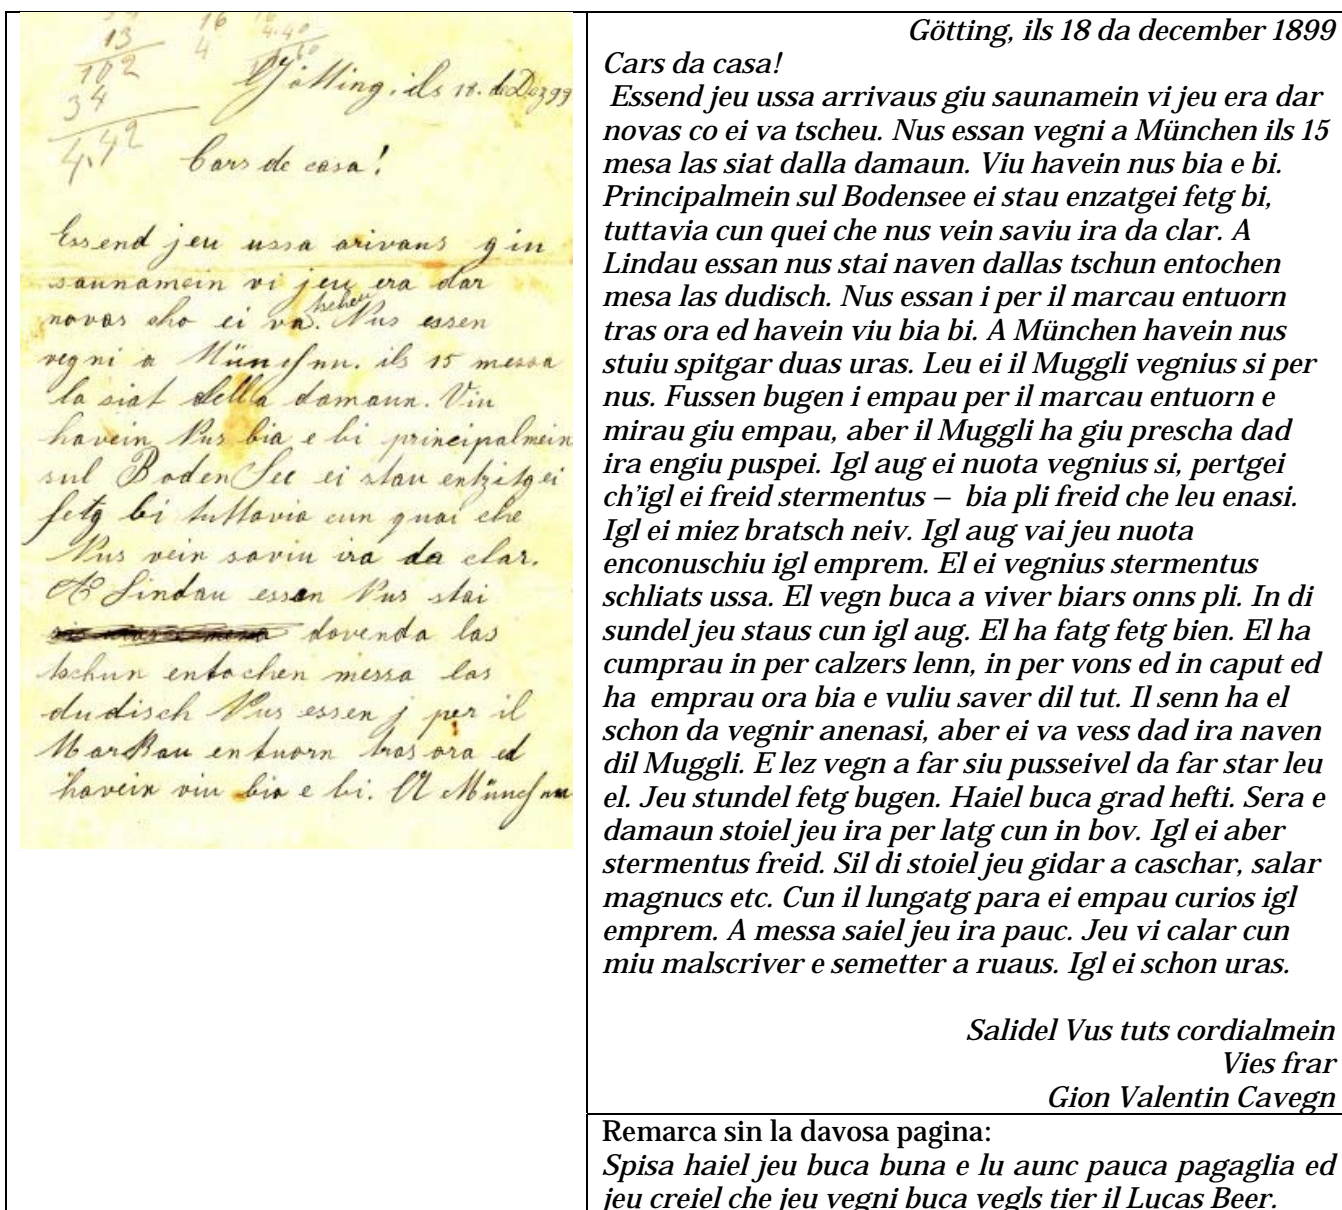 13
102
34
4,42
16
4
4.40
Götting, ils 18. de Dez 99
Cars de casa!
Essend jeu ussa arivaus giu
saunamein vi jeu era dar
novas cho ei va tscheu. Nus essen
vegni a München. ils 15 messa
la siat della damaun. Viu
havein Nus bia e bi principalmein
sul BodenSee ei stau entzitgei
fetg bi tuttavia cun quai che
Nus vein saviu ira da clar.
A Lindau essen Nus stai
davenda las
tschun entochen messa las
dudisch Nus essen j per il
Markau entuorn tras ora ed
havein viu bia e bi. A München
Götting, ils 18 da december 1899
Cars da casa!
Essend jeu ussa arrivaus giu saunamein vi jeu era dar
novas co ei va tscheu. Nus essan vegni a München ils 15
mesa las siat dalla damaun. Viu havein nus bia e bi.
Principalmein sul Bodensee ei stau enzatgei fetg bi,
tuttavia cun quei che nus vein saviu ira da clar. A
Lindau essan nus stai naven dallas tschun entochen
mesa las dudisch. Nus essan i per il marcau entuorn
tras ora ed havein viu bia bi. A München havein nus
stuiu spitgar duas uras. Leu ei il Muggli vegnius si per
nus. Fussen bugen i empau per il marcau entuorn e
mirau giu empau, aber il Muggli ha giu prescha dad
ira engiu puspei. Igl aug ei nuota vegnius si, pertgei
ch'igl ei freid stermentus – bia pli freid che leu enasi.
Igl ei miez bratsch neiv. Igl aug vai jeu nuota
enconuschiu igl emprem. El ei vegnius stermentus
schliats ussa. El vegn buca a viver biars onns pli. In di
sundel jeu staus cun igl aug. El ha fatg fetg bien. El ha
cumprau in per calzers lenn, in per vons ed in caput ed
ha emprau ora bia e vuliu saver dil tut. Il senn ha el
schon da vegnir anenasi, aber ei va vess dad ira naven
dil Muggli. E lez vegn a far siu pusseivel da far star leu
el. Jeu stundel fetg bugen. Haiel buca grad hefti. Sera e
damaun stoiel jeu ira per latg cun in bov. Igl ei aber
stermentus freid. Sil di stoiel jeu gidar a caschar, salar
magnucs etc. Cun il lungatg para ei empau curios igl
emprem. A messa saiel jeu ira pauc. Jeu vi calar cun
miu malscriver e semetter a ruaus. Igl ei schon uras.
Salidel Vus tuts cordialmein
Vies frar
Gion Valentin Cavegn
Remarca sin la davosa pagina:
Spisa haiel jeu buca buna e lu aunc pauca pagaglia ed
jeu creiel che jeu vegni buca vegls tier il Lucas Beer.